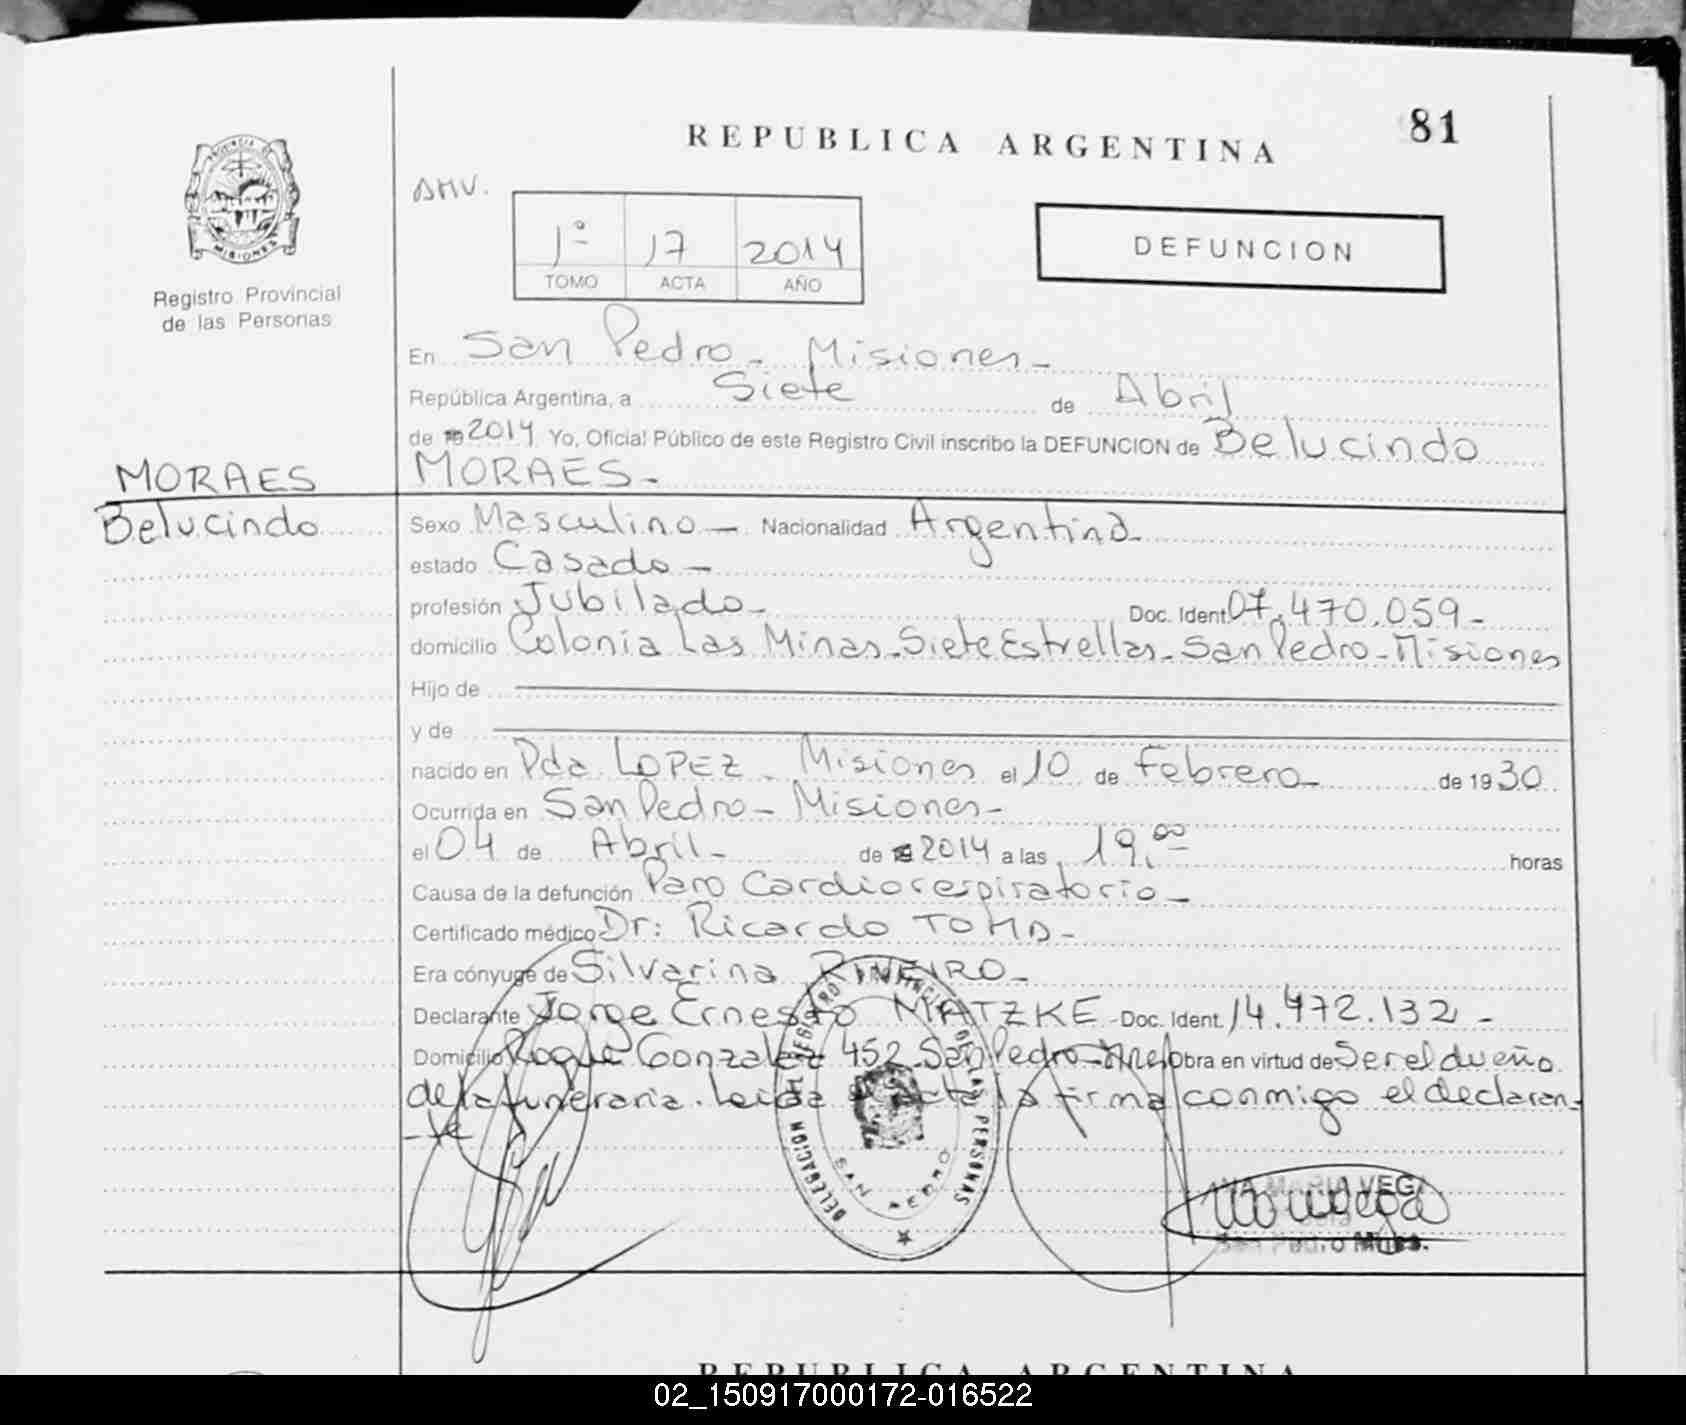 REPUBLICA ARGENTINA
81
PROVINCIA DE
MISIONES
Registro Provincial
de las Personas
AMV.
1º 17 2014
TOMO ACTA AÑO
DEFUNCION
En San Pedro - Misiones -
República Argentina, a Siete de Abril
de 19 2014 Yo, Oficial Público de este Registro Civil inscribo la DEFUNCION de Belucindo
MORAES MORAES -
Belucindo Sexo Masculino - Nacionalidad Argentina -
estado Casado -
profesión Jubilado - Doc. Ident. 07.470.059 -
domicilio Colonia Las Minas - Siete Estrellas - San Pedro - Misiones
Hijo de
y de
nacido en Pda. LOPEZ - Misiones el 10 de Febrero - de 1930
Ocurrida en San Pedro - Misiones -
el 04 de Abril - de 19 2014 a las 19,00 horas
Causa de la defunción Paro Cardiorespiratorio -
Certificado médico Dr: Ricardo TOMA -
Era cónyuge de Silvarina RIVEIRO -
Declarante Jorge Ernesto MATZKE - Doc. Ident. 14.472.132 -
Domicilio Roque Gonzalez 452 San Pedro - Mnes Obra en virtud de Ser el dueño
de la funeraria. Leida el acta la firma conmigo el declaran-
-te
DELEGACION DEL REGISTRO PROVINCIAL DE LAS PERSONAS
SAN PEDRO
ANA MARIA VEGA
San Pedro Mnes.
REPUBLICA ARGENTINA
02_150917000172-016522